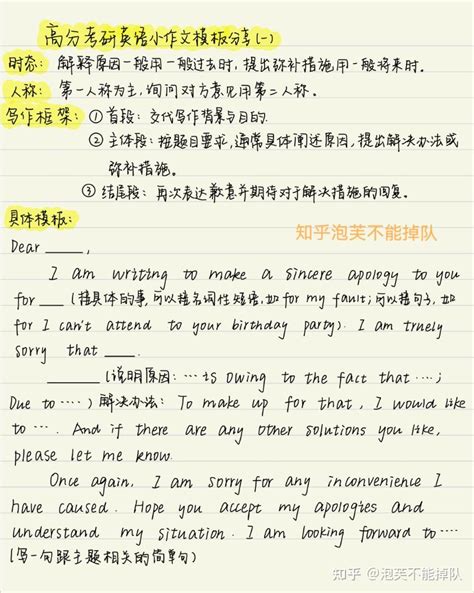 高分考研英语小作文模板分享(一)
时态: 解释原因一般用一般过去时,提出弥补措施用一般将来时.
人称: 第一人称为主,询问对方意见用第二人称.
写作框架: ① 首段: 交代写作背景与目的.
② 主体段: 按题目要求,通常具体阐述原因,提出解决办法或
弥补措施.
③ 结尾段: 再次表达歉意并期待对于解决措施的回复.
具体模板:
知乎泡芙不能掉队
Dear ____,
I am writing to make a sincere apology to you
for ___ (接具体的事,可以接名词性短语,如 for my fault; 可以接句子,如
for I can't attend to your birthday party). I am truely
sorry that ____.
______ (说明原因: ... is owing to the fact that ....;
Due to ....) 解决办法: To make up for that, I would like
to .... And if there are any other solutions you like,
please let me know.
Once again, I am sorry for any inconvenience I
have caused. Hope you accept my apologies and
understand my situation. I am looking forward to ....
(写一句跟主题相关的简单句)
知乎 @泡芙不能掉队